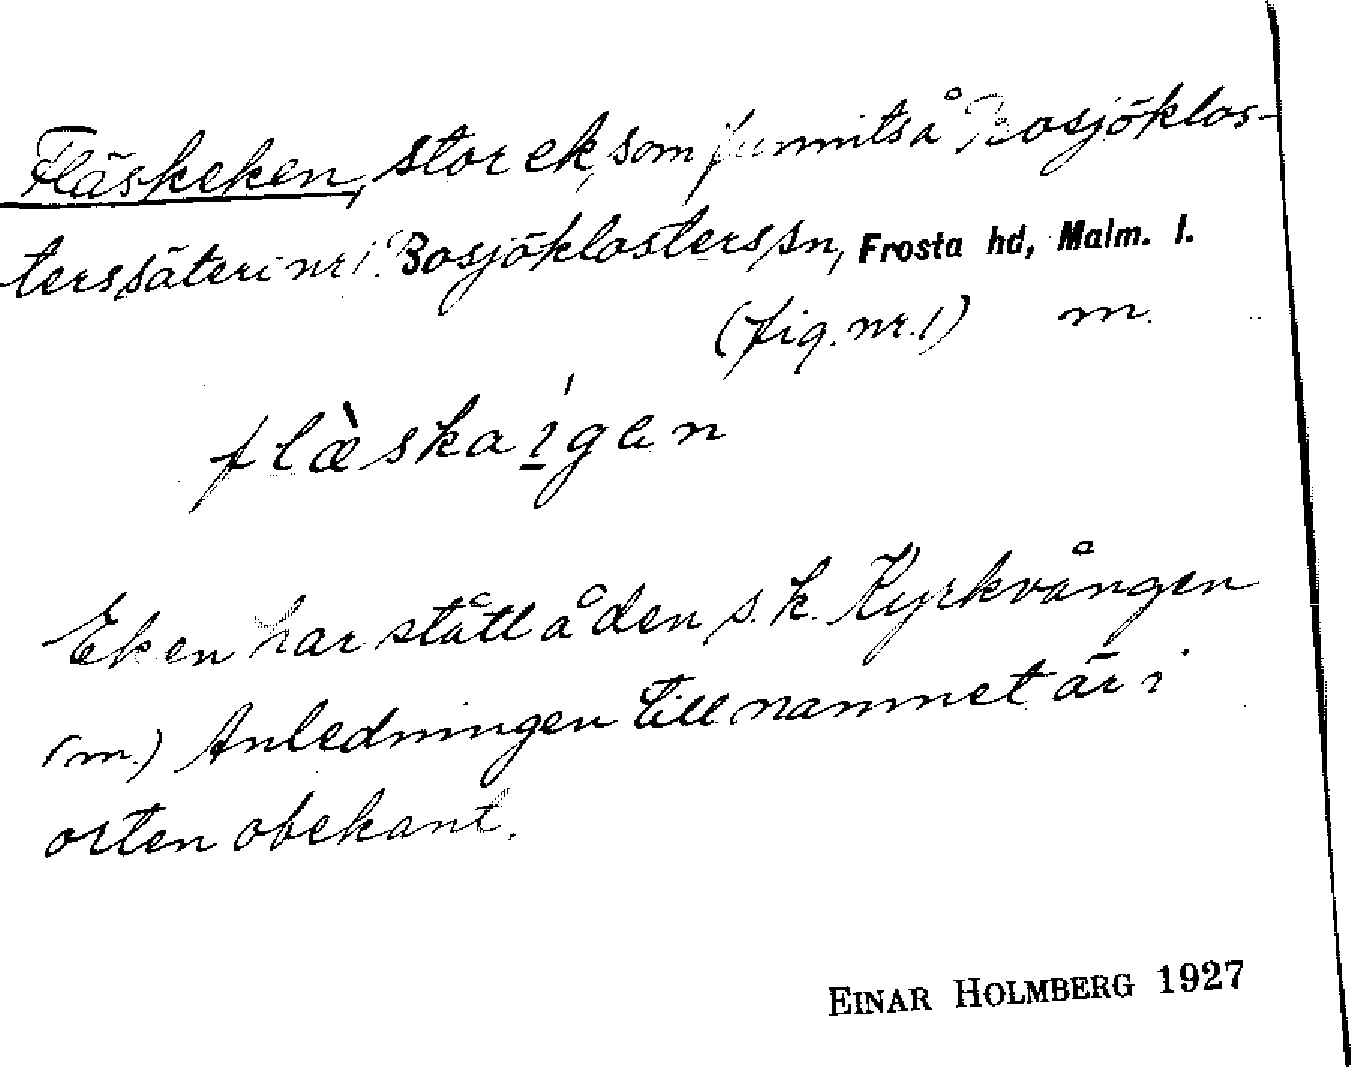 Fläskeken, stor ek, som funnits å Bosjöklos-
ters säteri nr 1. Bosjöklosters sn, Frosta hd, Malm. l.
(fig. nr. 1) m.
flæ̀skaígen
Eken har stått å den s. k. Kyrkvången
(m.) Anledningen till namnet är i
orten obekant.
EINAR HOLMBERG 1927